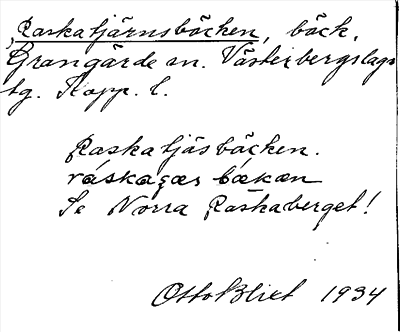 Raskatjärnsbäcken, bäck,
Grangärde sn. Västerbergslags
tg. Kopp. l.
Raskatjäsbäcken.
ráskaçæs bækæn
Se Norra Raskaberget!
Otto Blixt 1934